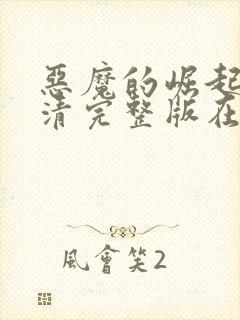 惡魔的崛起
清完整版在
風會笑2